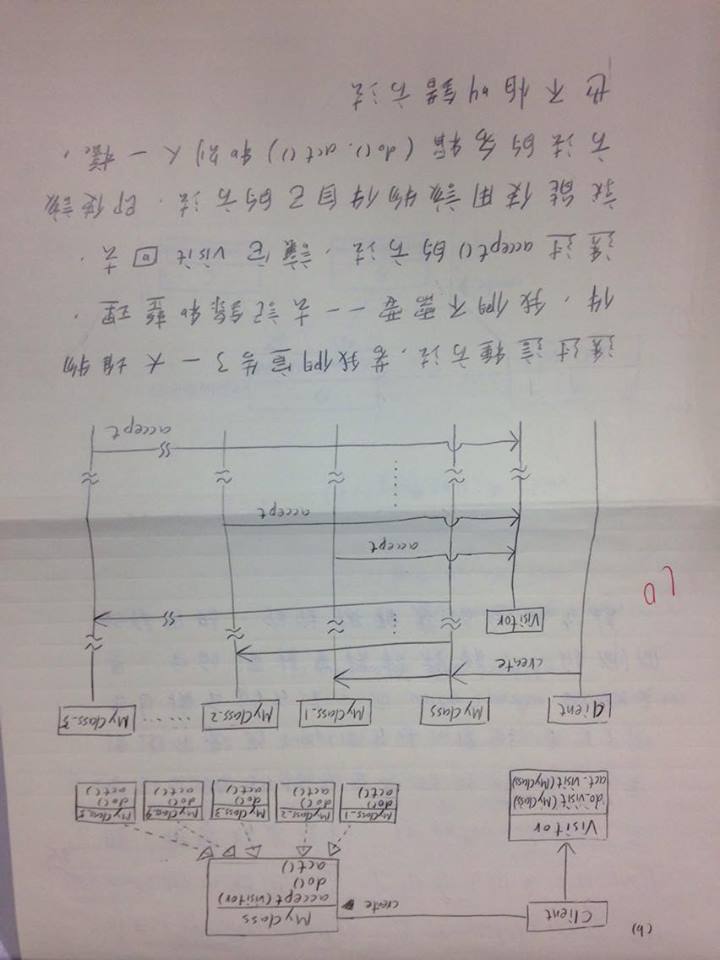 (b)
Client
create
MyClass
accept(visitor)
do()
act()
Visitor
do_visit(MyClass)
act_visit(MyClass)
MyClass_1
do()
act()
MyClass_2
do()
act()
MyClass_3
do()
act()
MyClass_4
do()
act()
MyClass_5
do()
act()
Client
MyClass
MyClass_1
MyClass_2
MyClass_5
create
Visitor
10
accept
accept
accept
透过這種方法,若我們宣告了一大堆物
件,我們不需要一一去記錄和整理,
透过accept()的方法,讓它visit回去,
就能使用該物件自己的方法.即使該
方法的名稱(do().act())和別人一樣,
也不怕叫錯方法